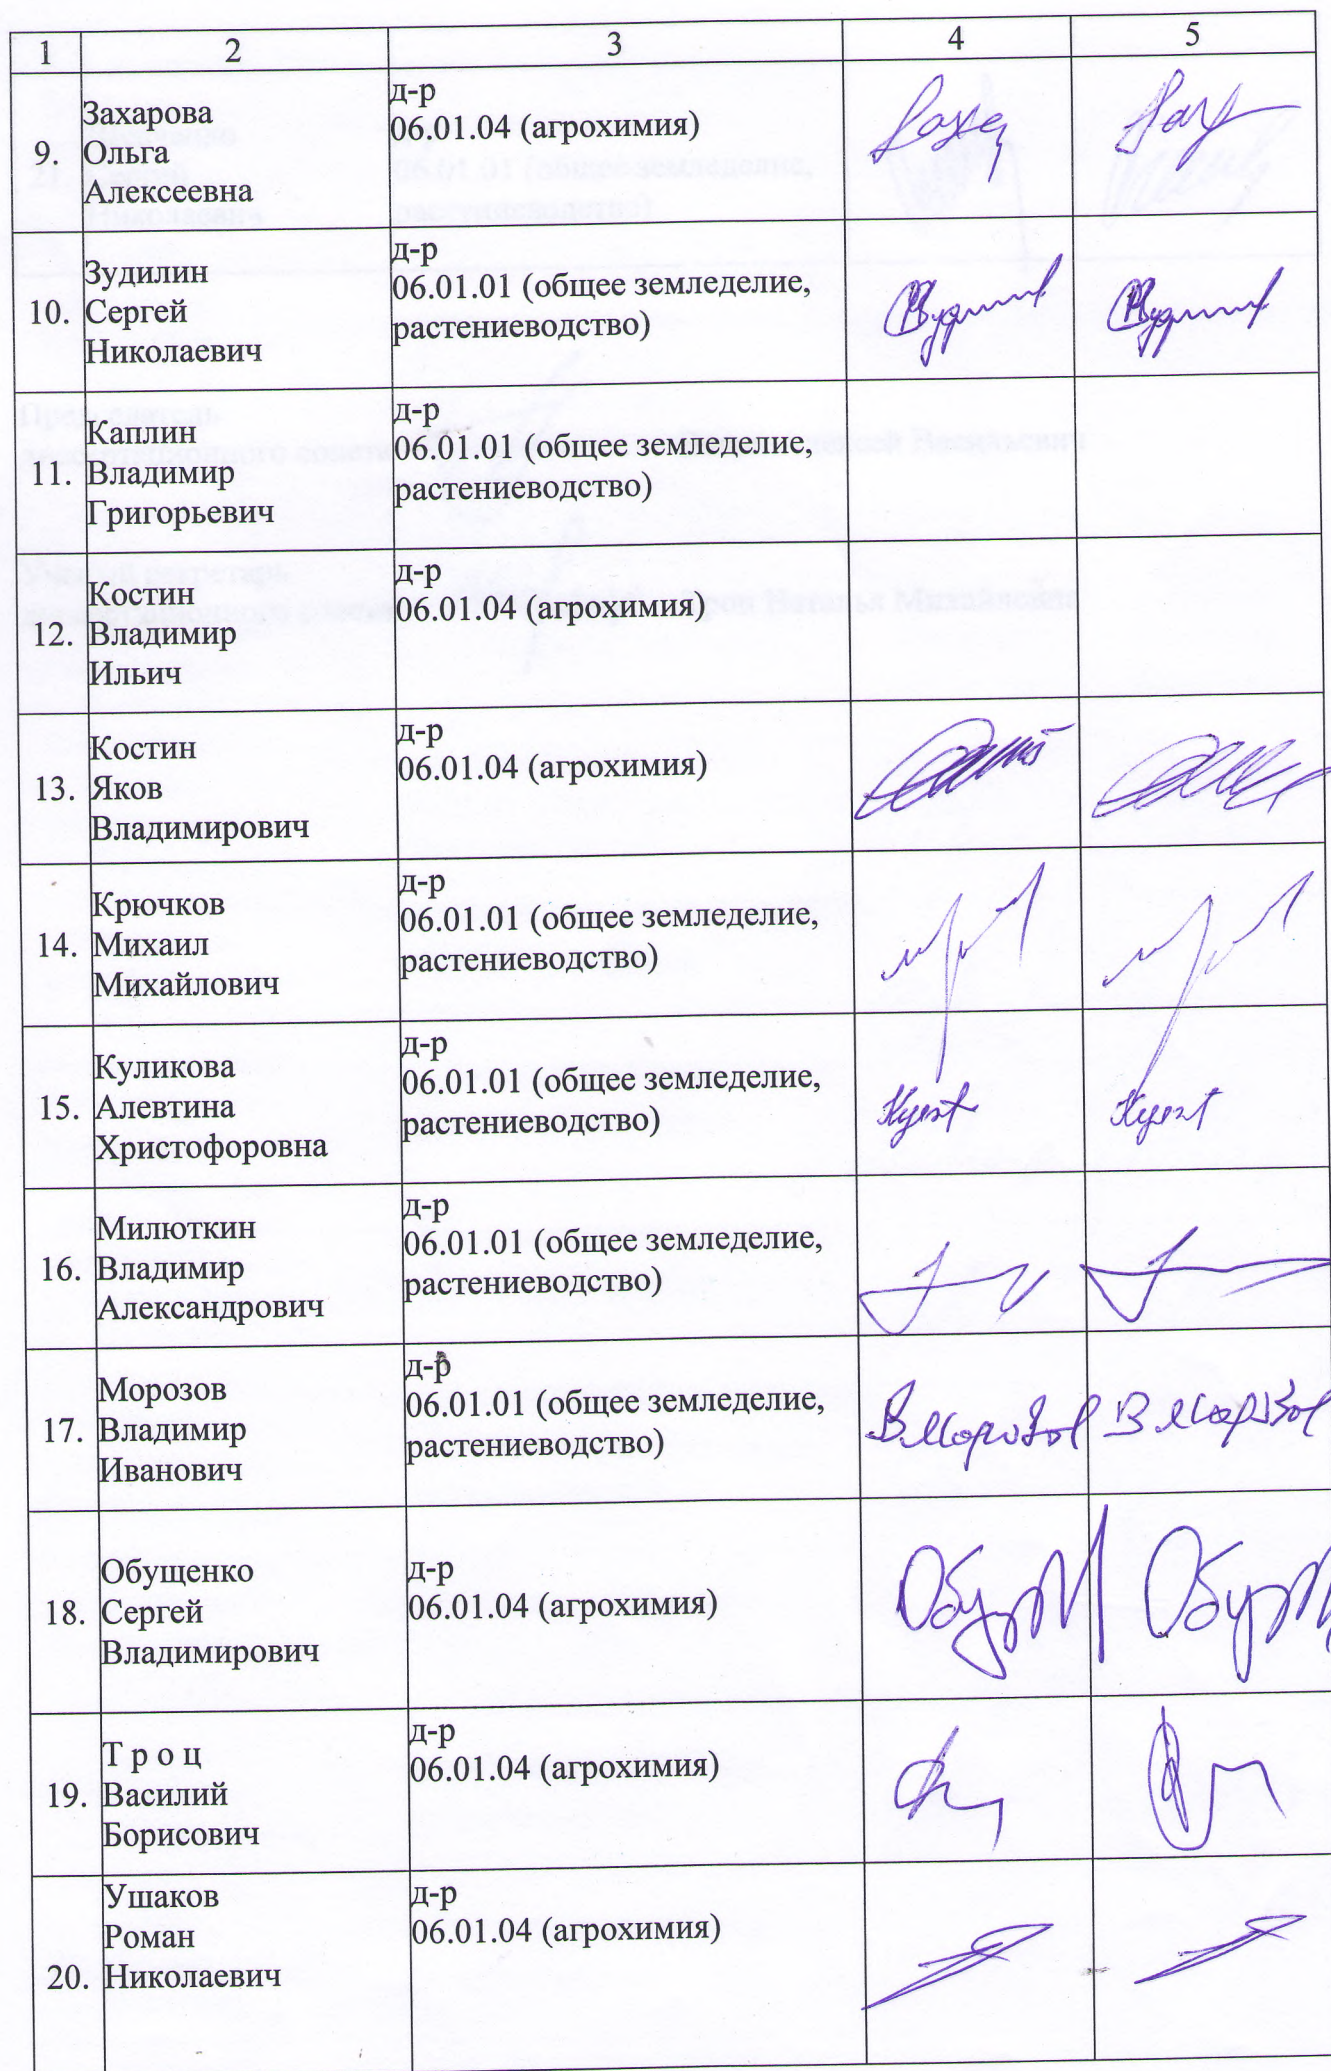 1 2 3 4 5
9. Захарова
Ольга
Алексеевна
д-р
06.01.04 (агрохимия)
10. Зудилин
Сергей
Николаевич
д-р
06.01.01 (общее земледелие,
растениеводство)
11. Каплин
Владимир
Григорьевич
д-р
06.01.01 (общее земледелие,
растениеводство)
12. Костин
Владимир
Ильич
д-р
06.01.04 (агрохимия)
13. Костин
Яков
Владимирович
д-р
06.01.04 (агрохимия)
14. Крючков
Михаил
Михайлович
д-р
06.01.01 (общее земледелие,
растениеводство)
15. Куликова
Алевтина
Христофоровна
д-р
06.01.01 (общее земледелие,
растениеводство)
16. Милюткин
Владимир
Александрович
д-р
06.01.01 (общее земледелие,
растениеводство)
17. Морозов
Владимир
Иванович
д-р
06.01.01 (общее земледелие,
растениеводство)
ВМорозов ВМорозов
18. Обущенко
Сергей
Владимирович
д-р
06.01.04 (агрохимия)
19. Т р о ц
Василий
Борисович
д-р
06.01.04 (агрохимия)
20. Ушаков
Роман
Николаевич
д-р
06.01.04 (агрохимия)